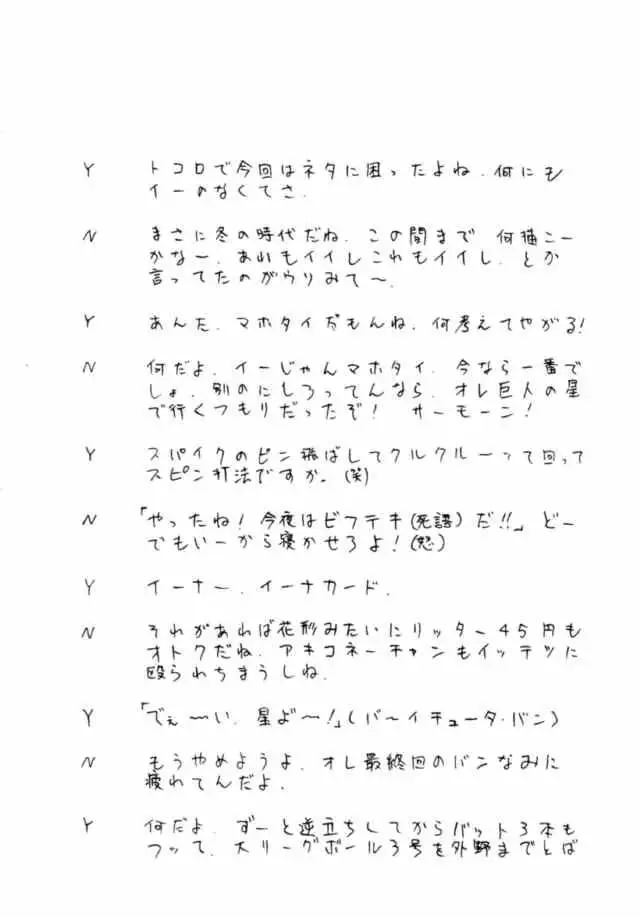 Y トコロで今回はネタに困ったよね、何にも
イーのなくてさ.
N まさに冬の時代だね、この間まで 何描こー
かなー、あれもイイしこれもイイし、とか
言ってたのがウソみて〜.
Y あんた、マホタイだもんね、何考えてやがる!
N 何だよ、イーじゃんマホタイ、今なら一番で
しょ、別のにしろってんなら、オレ巨人の星
で行くつもりだったぞ! サーモーン!
Y スパイクのピン飛ばしてクルクルーって回って
スピン打法ですか。(笑)
N 「やったね!今夜はビフテキ(死語)だ!!」どー
でもいーから寝かせろよ!(怒)
Y イーナー、イーナカード.
N それがあれば花形みたいにリッター45円も
オトクだね、アキコネーチャンもイッテツに
殴られちまうしね.
Y 「でぇ〜〜い、星よ〜!」(バ〜イチュータ・バン)
N もうやめようよ、オレ最終回のバンなみに
疲れてんだよ.
Y 何だよ、ずーと逆立ちしてからバット3本も
フッて、大リーグボール3号を外野までとば